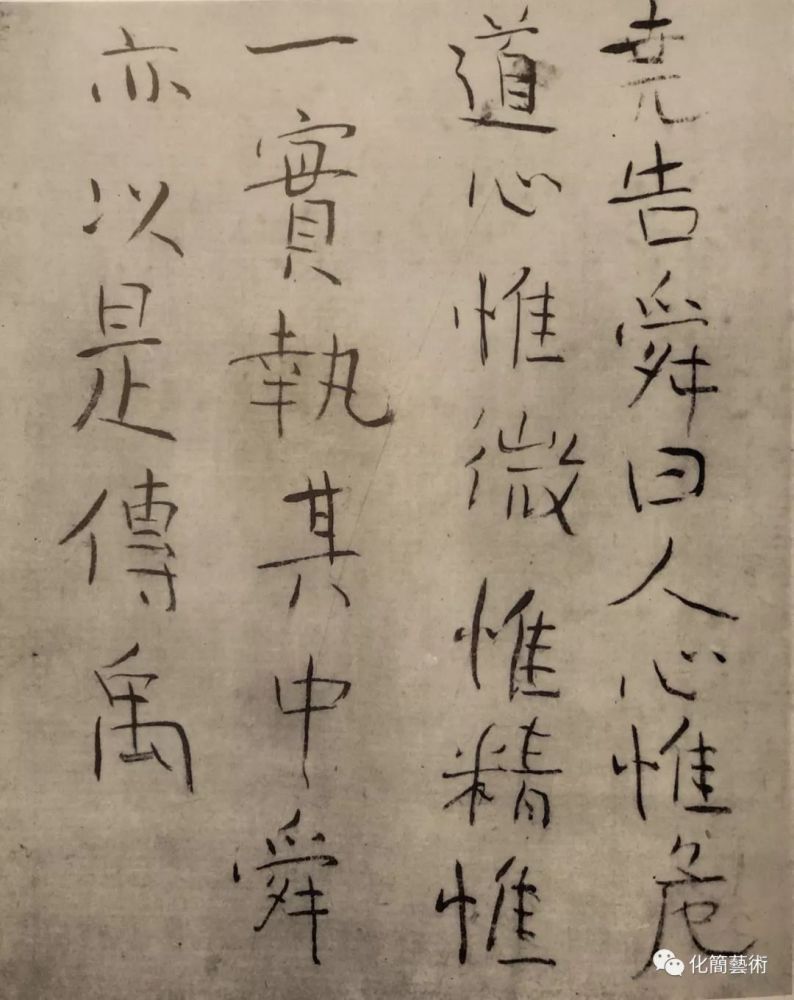 堯告舜曰人心惟危
道心惟微惟精惟
一實執其中舜
亦以是傳禹
化簡藝術